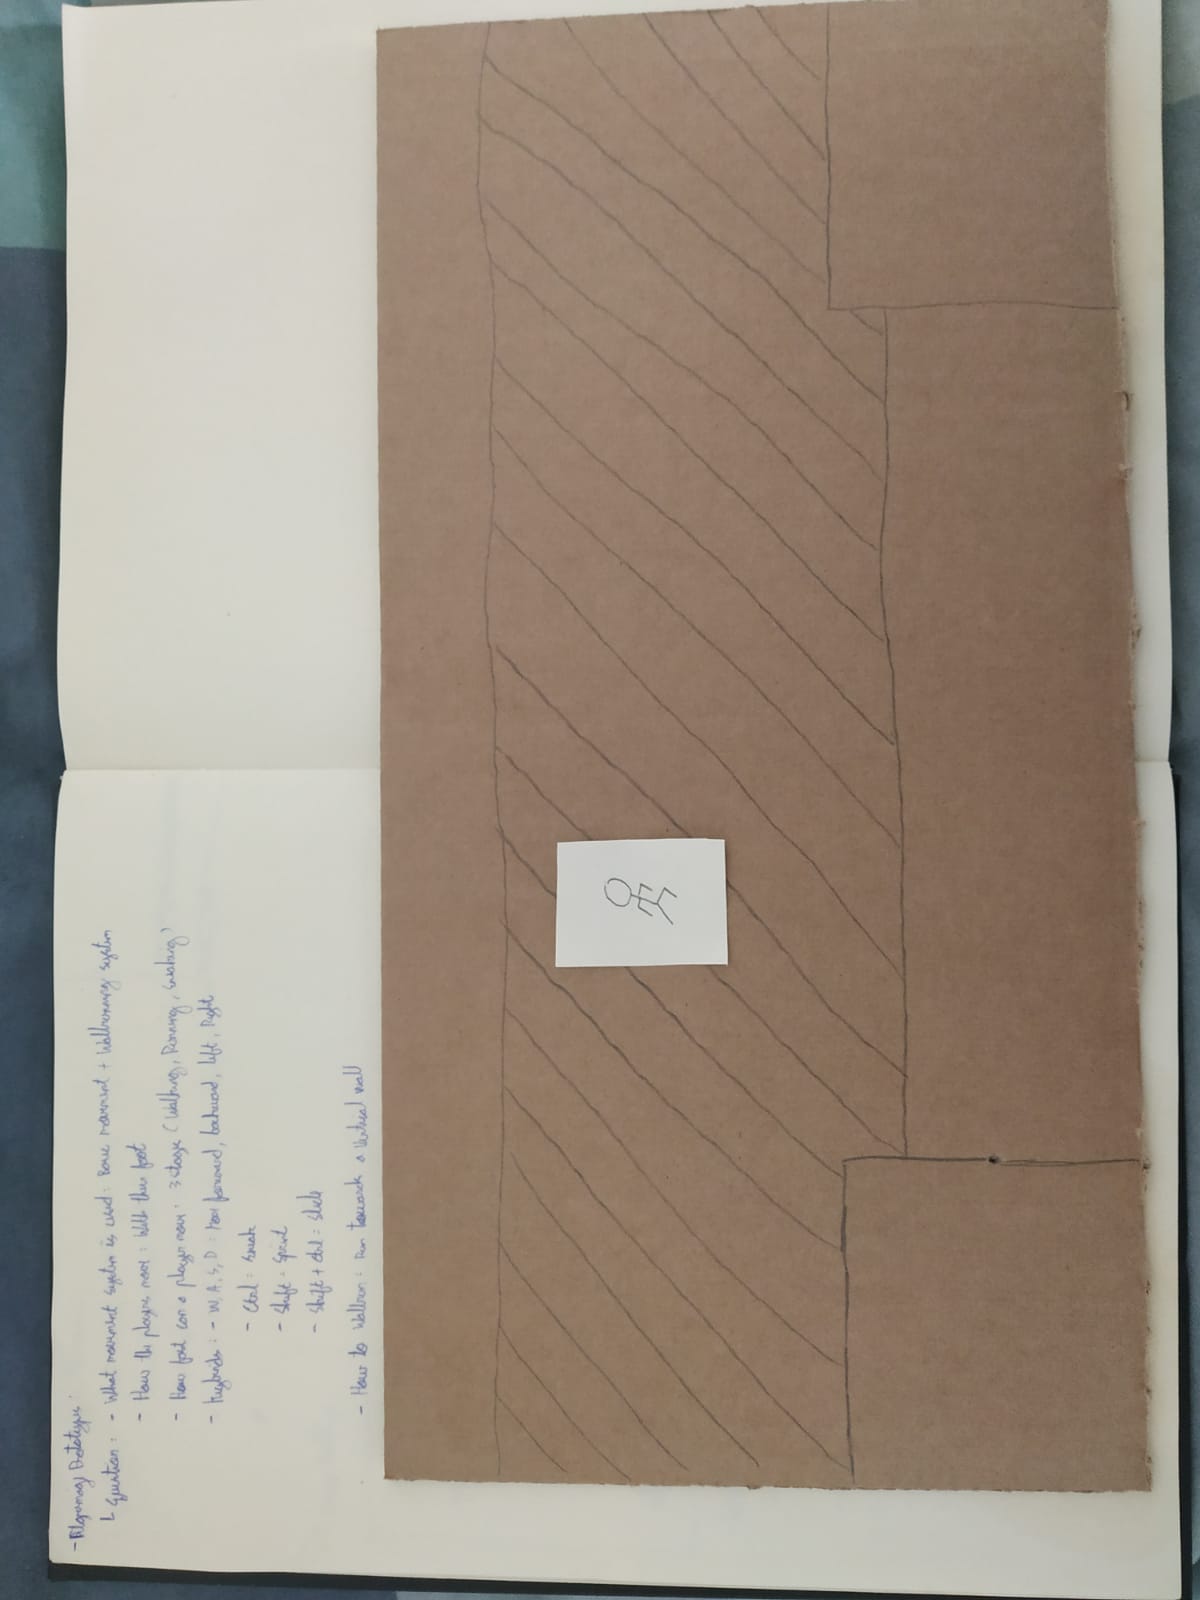 - Prototype
└ Question : - What movement system is used : Base movement + Wallrunning system
- How the players move : With their foot
- How fast can a player move : 3 stage (Walking, Running, Sneaking)
- Keybinds : - W, A, S, D : Move forward, backward, left, Right
- Ctrl = Sneak
- Shift = Sprint
- Shift + Ctrl = Slide
- How to Wallrun : Run towards a Vertical wall